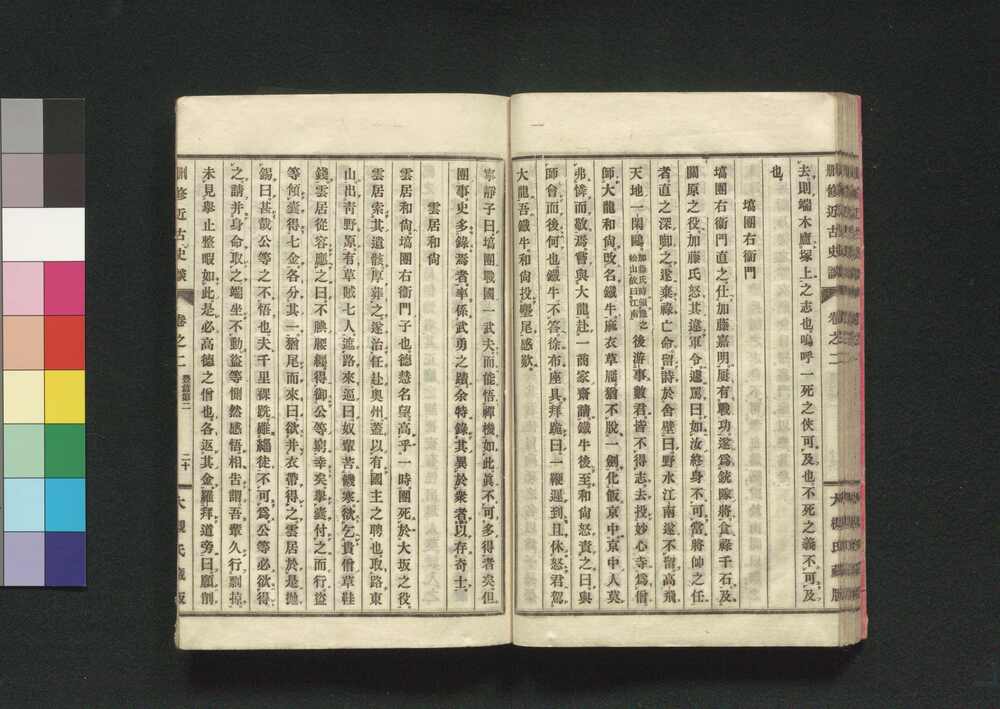 去則端木廬塚上之志也嗚呼一死之俠可及也不死之義不可及
也
塙團右衞門
塙團右衞門直之仕加藤嘉明屢有戰功遂爲銃隊將食祿千石及
關原之役加藤氏怒其違軍令遽罵曰如汝終身不可當將帥之任
者直之深啣之遂棄祿亡命留詩於舍壁曰野水江南遂不留高飛
天地一閑鷗加藤氏時領豫之松山故曰江南後游事數君皆不得志去投妙心寺爲僧
師大龍和尙改名鐵牛麻衣草屩猶不脫一劍化飯京中京中人莫
弗憐而敬焉嘗與大龍赴一商家齋請鐵牛後至和尙怒責之曰與
師會而後何也鐵牛不答徐布座具拜跪曰一鞭遲到且休怒君駕
大龍吾鐵牛和尙投麈尾感歎
寧靜子曰塙團戰國一武夫而能悟禪機如此眞不可多得者矣但
團事史多錄焉者率係武勇之蹟余特錄其異於衆者以存奇士
雲居和尙
雲居和尙塙團右衞門子也德慧名望高乎一時團死於大坂之役
雲居索其遺骸厚葬之遂治任赴奧州蓋以有國主之聘也取路東
山出靑野原有草賊七人遮路來逼曰奴輩苦饑寒欲乞貴僧草鞋
錢雲居從容應之曰不腆腰纏得御公等窮幸矣擧囊付之而行盜
等傾囊得七金各分其一猶尾而來曰欲幷衣帶得之雲居於是拋
錫曰甚哉公等之不悟也夫千里裸跣羅緇徒不可爲公等必欲得
之請幷身命取之端坐不動盜等惻然感悟相告謂吾輩久行剽掠
未見擧止整暇如此是必高德之僧也各返其金羅拜道旁曰願削
刪修近古史談
卷之二
豐篇第二
二十
大槻氏藏版